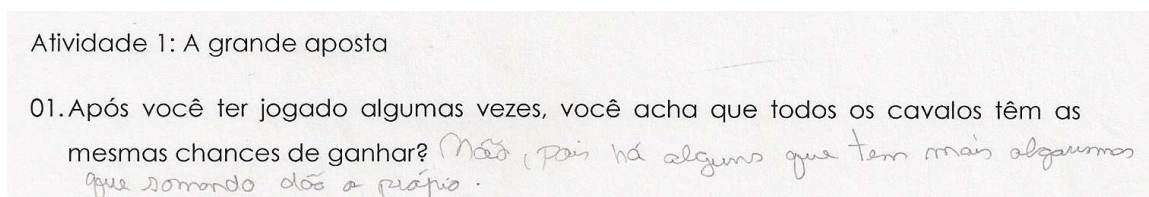 Atividade 1: A grande aposta
01. Após você ter jogado algumas vezes, você acha que todos os cavalos têm as
mesmas chances de ganhar? Não, pois há alguns que tem mais algarismos
que somando dão o própio.